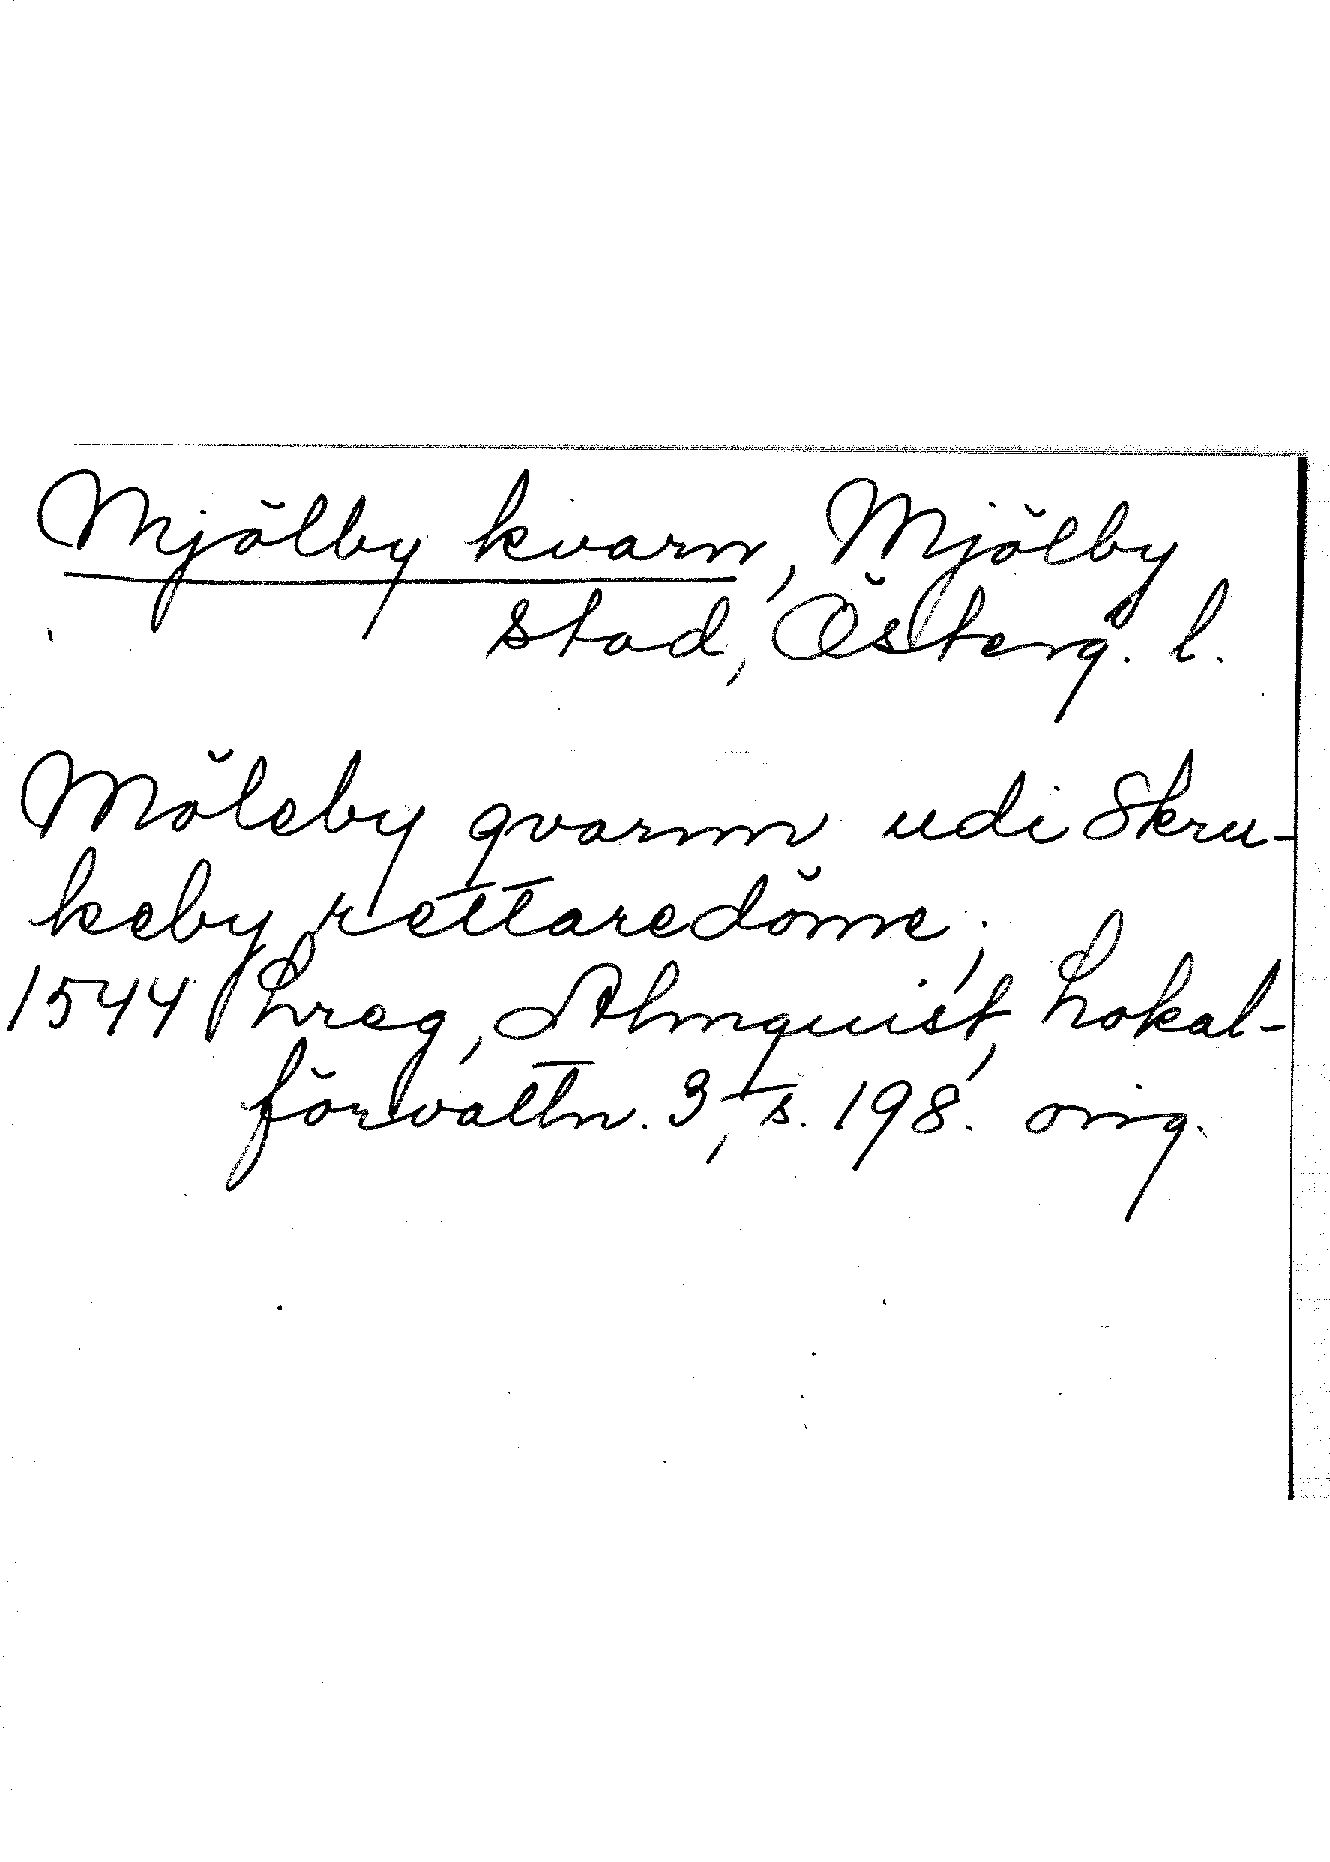 Mjölby kvarn, Mjölby
stad, Österg. l.
Möleby qvarnn udi Skru-
keby rettaredöme;
1544 Lreg, Almquist, Lokal-
förvaltn. 3, s. 198. orig.